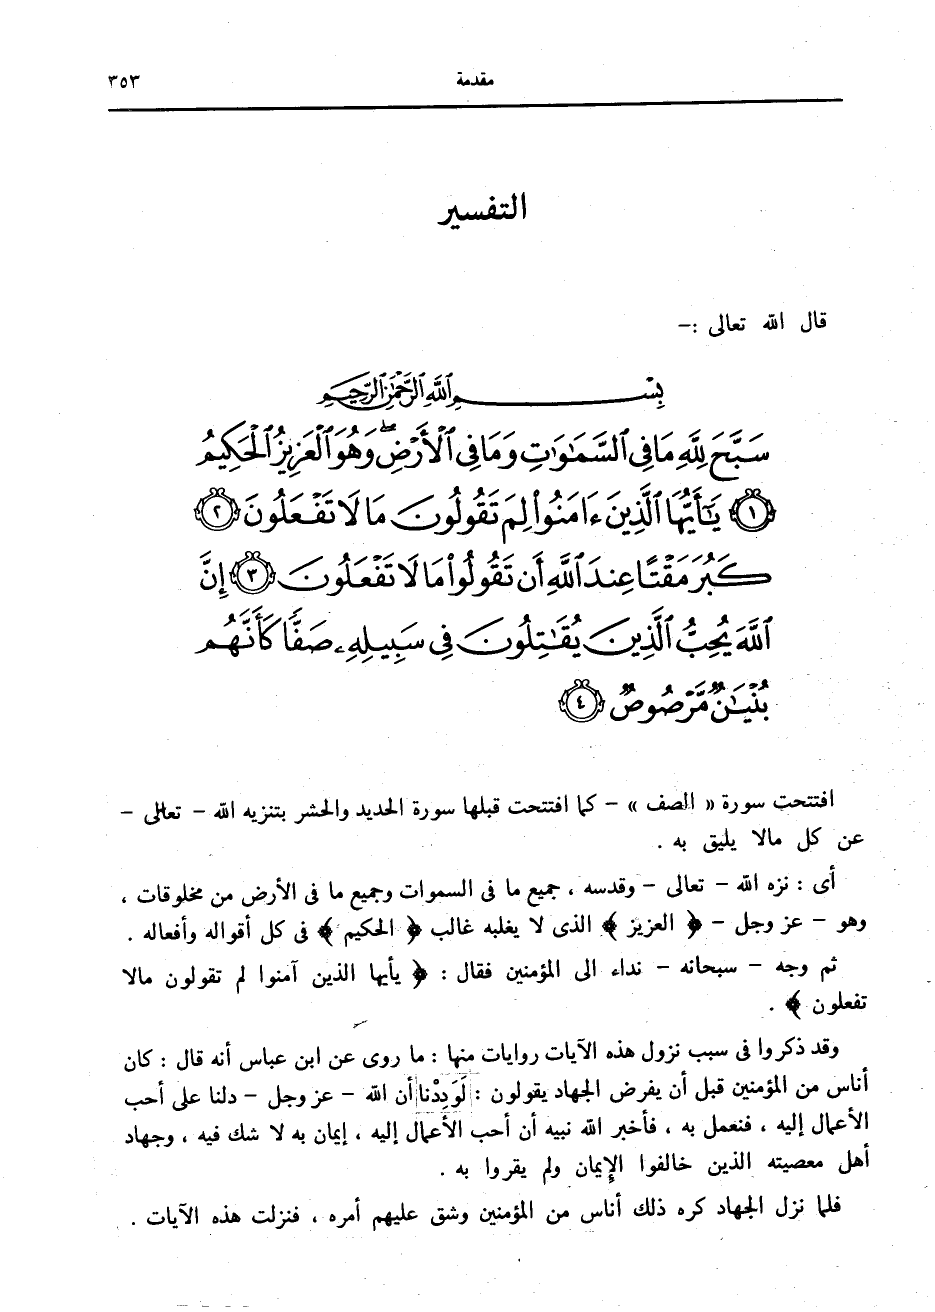 مقدمة ٣٥٣
التفسير
قال الله تعالى :–
بِسْمِ ٱللَّهِ ٱلرَّحْمَٰنِ ٱلرَّحِيمِ
سَبَّحَ لِلَّهِ مَا فِى ٱلسَّمَٰوَٰتِ وَمَا فِى ٱلْأَرْضِ ۖ وَهُوَ ٱلْعَزِيزُ ٱلْحَكِيمُ
﴿١﴾ يَٰٓأَيُّهَا ٱلَّذِينَ ءَامَنُوا۟ لِمَ تَقُولُونَ مَا لَا تَفْعَلُونَ ﴿٢﴾
كَبُرَ مَقْتًا عِندَ ٱللَّهِ أَن تَقُولُوا۟ مَا لَا تَفْعَلُونَ ﴿٣﴾ إِنَّ
ٱللَّهَ يُحِبُّ ٱلَّذِينَ يُقَٰتِلُونَ فِى سَبِيلِهِۦ صَفًّا كَأَنَّهُم
بُنْيَٰنٌ مَّرْصُوصٌ ﴿٤﴾
افتتحت سورة « الصف » – كما افتتحت قبلها سورة الحديد والحشر بتنزيه الله – تعالى –
عن كل مالا يليق به .
أى : نزه الله – تعالى – وقدسه ، جميع ما فى السموات وجميع ما فى الأرض من مخلوقات ،
وهو – عز وجل – ﴿ العزيز ﴾ الذى لا يغلبه غالب ﴿ الحكيم ﴾ فى كل أقواله وأفعاله .
ثم وجه – سبحانه – نداء الى المؤمنين فقال : ﴿ يأيها الذين آمنوا لم تقولون مالا
تفعلون ﴾ .
وقد ذكروا فى سبب نزول هذه الآيات روايات منها : ما روى عن ابن عباس أنه قال : كان
أناس من المؤمنين قبل أن يفرض الجهاد يقولون : لَوَدِدْنا أن الله – عز وجل – دلنا على أحب
الأعمال إليه ، فنعمل به ، فأخبر الله نبيه أن أحب الأعمال إليه ، إيمان به لا شك فيه ، وجهاد
أهل معصيته الذين خالفوا الإيمان ولم يقروا به .
فلما نزل الجهاد كره ذلك أناس من المؤمنين وشق عليهم أمره ، فنزلت هذه الآيات .